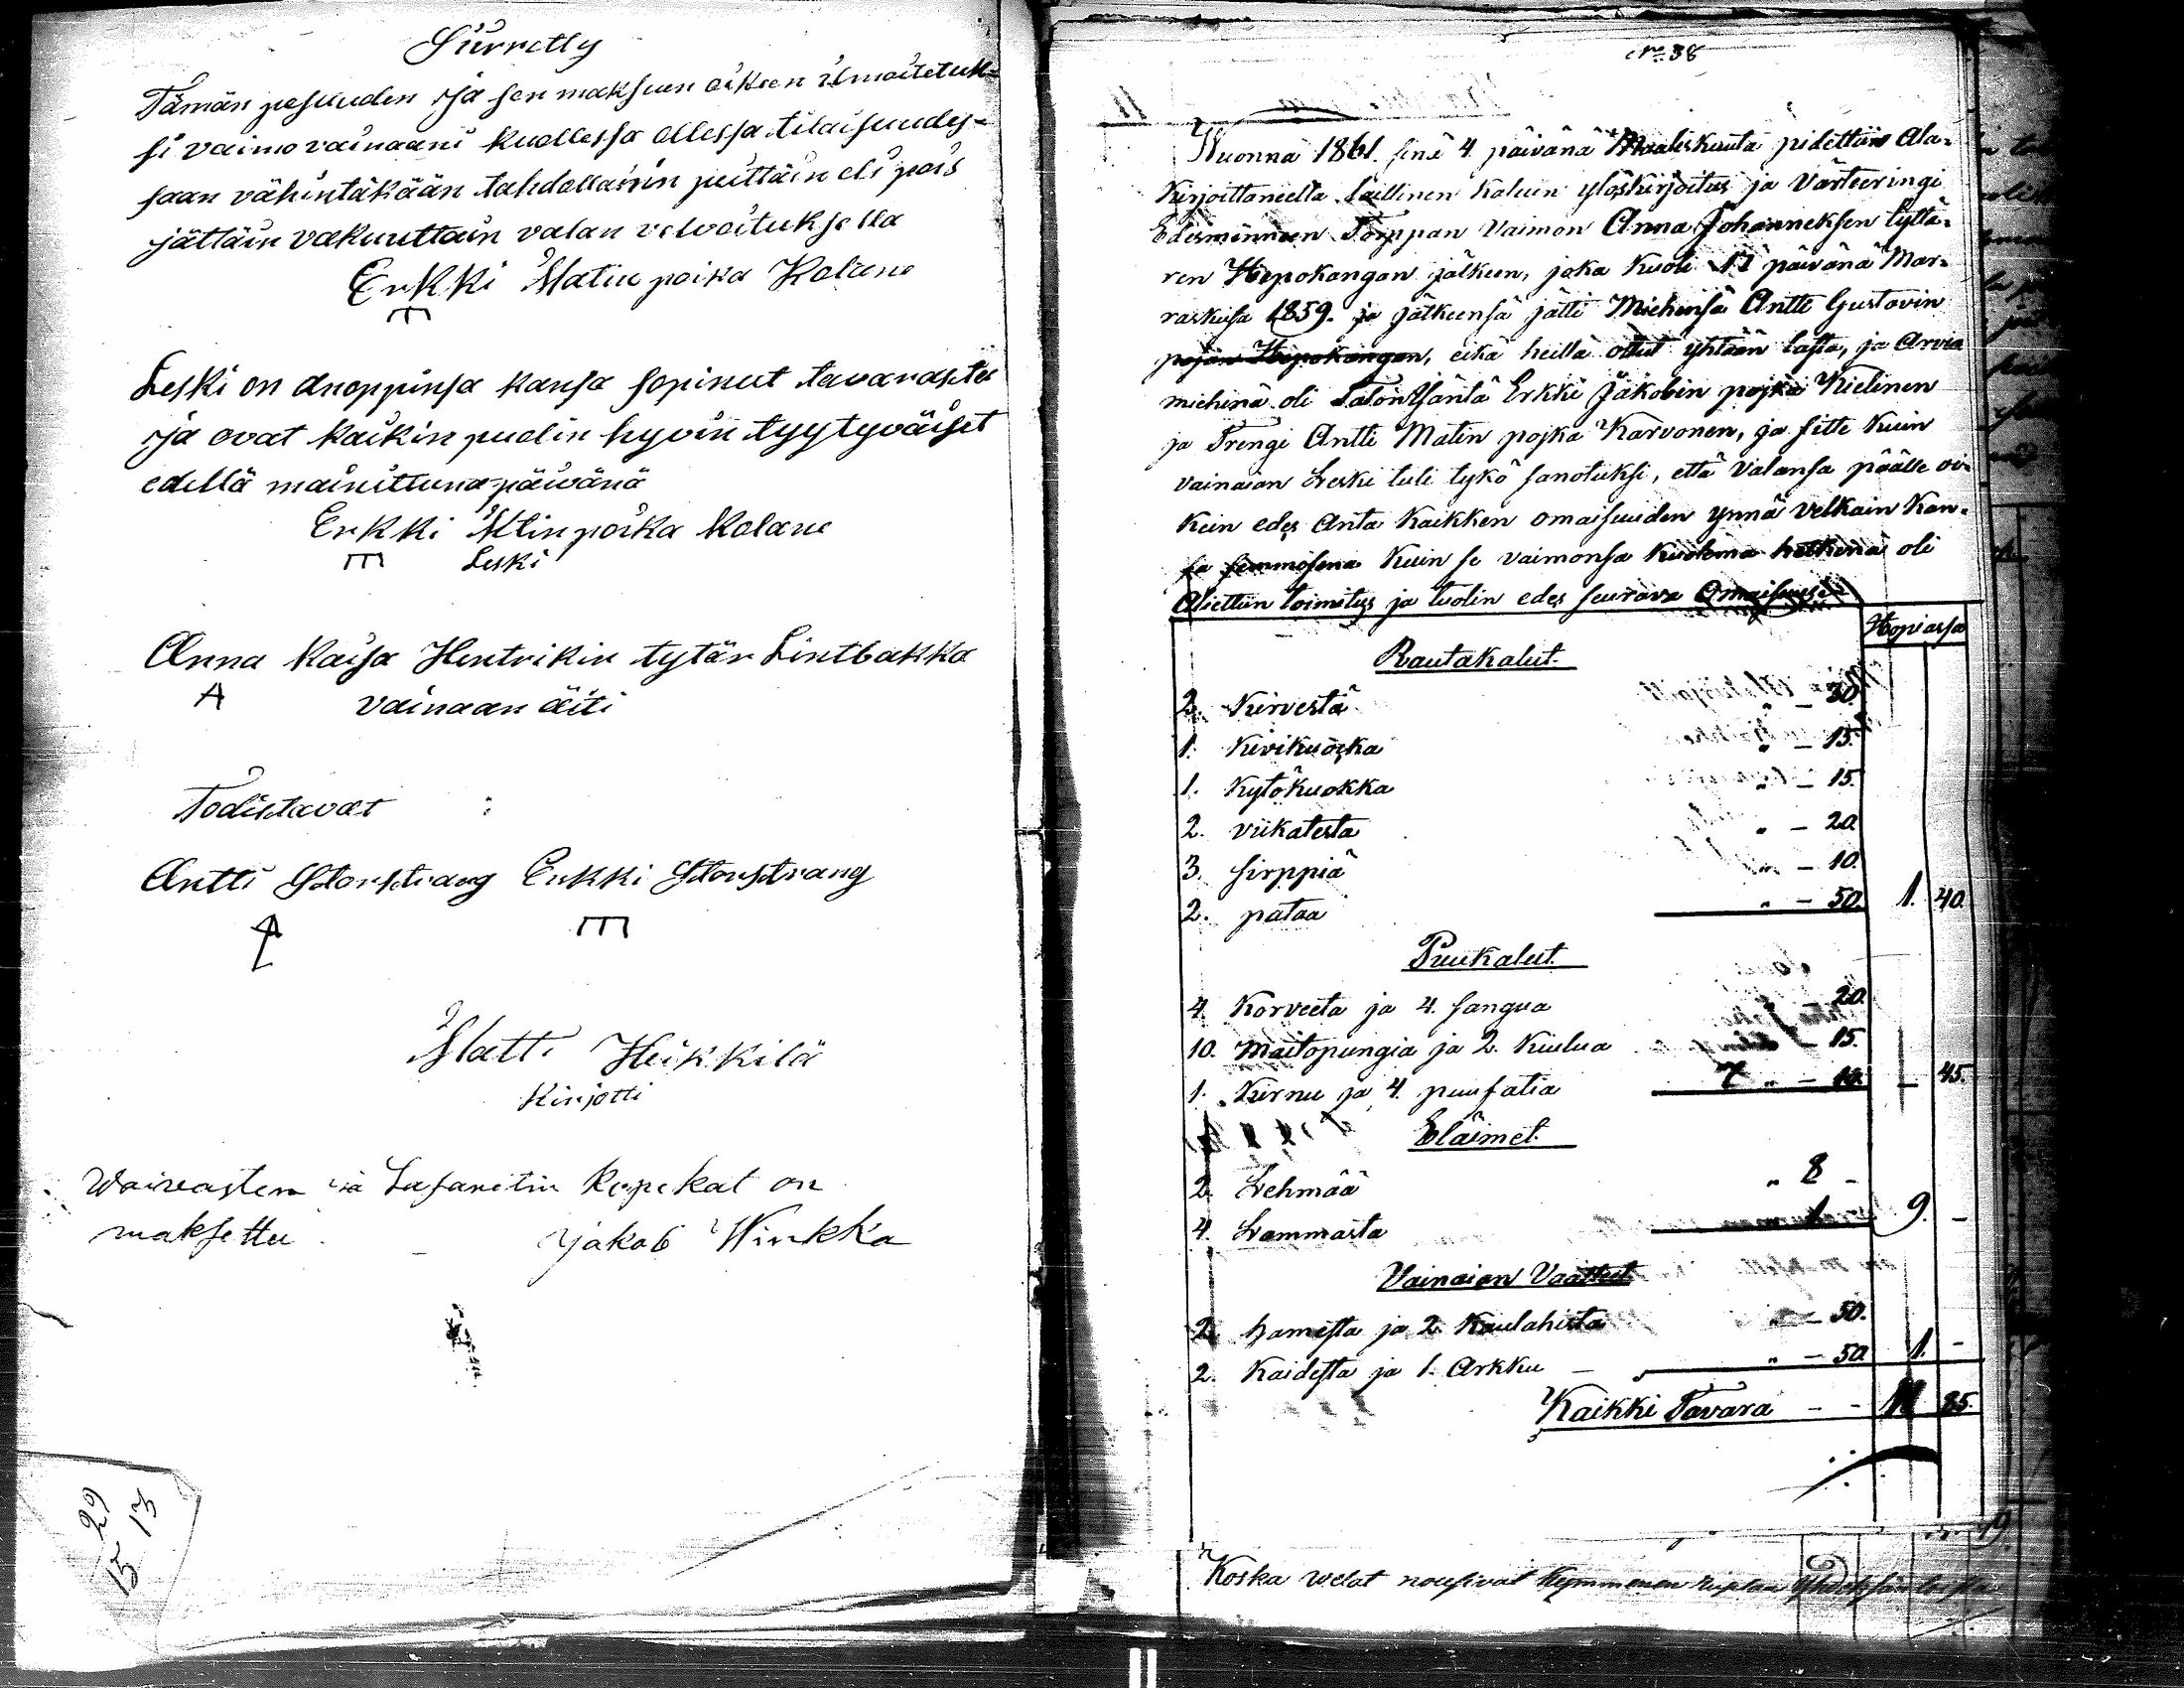 Siirretty
Tämän pesuuden ja sen maksuun oikeen ilmoitetuk-
si vaimo vainaani kuollessa ollessa tilaisuudes-
saan vähintäkään tahdollaisin peittäin eli pois
jättäin vakuuttain valan velvoituksella
Erkki Matin poika Kolune
Leski on anoppinsa kansa sopinut tavarasta
ja ovat kaikin puolin hyvin tyytyväiset
edellä mainittuna päivänä
Erkki Mtin poika Kolane
Leski
Anna Kaisa Hentrikin tytär Lintbakka
A vainaan äiti
Todistavat :
Antti Storstrang Erkki Storstrang
Matti Heikkilä
Kirjotti
Waivasten ja Lasaretin Kopekat on
maksettu. Jakob Winkka
29
15 13
No 38
Wuonna 1861. sinä 4. päivänä Maaliskuuta pidettiin Ala-
kirjoittaneelta laillinen kaluin ylöskirjoitus ja Värteeringi
Edesmenneen Torppan Vaimon Anna Johanneksen tyttä-
ren Hepokangan jälkeen, joka kuoli 17 päivänä Mar-
raskusa 1859. ja jälkeensä jätti Miehensä Antti Gustavin
pojan Hepokangan, eikä heillä ollut yhtään lasta, ja Arvio
miehinä oli Talon Isäntä Erkki Jakobin pojka Kielinen
ja Trengi Antti Matin pojka Karvonen, ja sitte kuin
vainaian Leski tuli tykö sanotuksi, että Valansa päälle oi-
kein edes Anta kaikken omaisuuden ynnä velkain kan-
sa semmosena kuin se vaimonsa kuolema hetkenä oli
Aliettiin toimitus ja tuolin edes seurava Omaisuus
Hopiassa
Rautakalut.
2. Kirvestä " – 30.
1. Kivikuokka " – 15.
1. Kytökuokka " – 15.
2. viikatesta " – 20.
3. sirppiä " – 10.
2. pataa " – 50. 1. 40.
Puukalut.
4. Korveeta ja 4. sangua 20.
10. Maitopungia ja 2. Kiulua – 15.
1. Kirnu ja 4. puufatia " – 10. – 45.
Eläimet.
2. Lehmää " 8 –
4. Lammasta 1 9. –
Vainaian Vaatteet
2. hamesta ja 2. Kaulahista " – 50.
2. Kaidesta ja 1. Arkku – " – 50. 1. –
Kaikki Tavara – – 11 85.
Koska velat nousivat kymmenen ruplaa